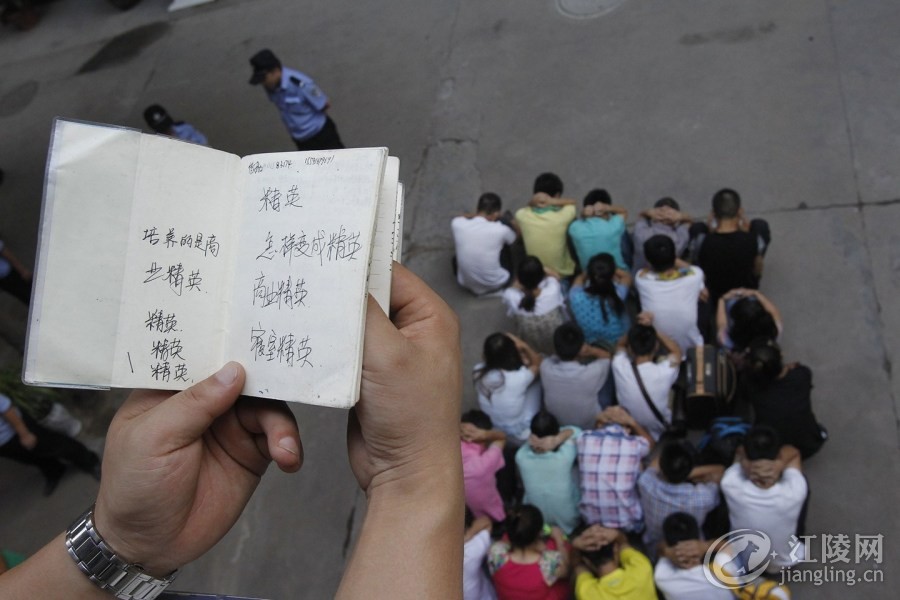 培养的是商
业精英.
精英.
精英
精英.
精英
怎样变成精英
商业精英.
寝室精英.
江陵网
jiangling.cn